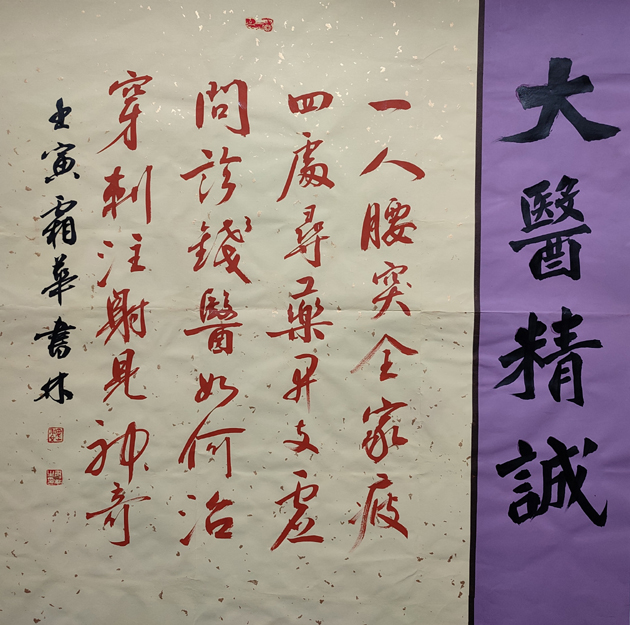 大醫精誠
一人腰突全家疲
四處尋藥支虛
問診錢醫如何治
穿刺注射見神奇
壬寅霜華書林